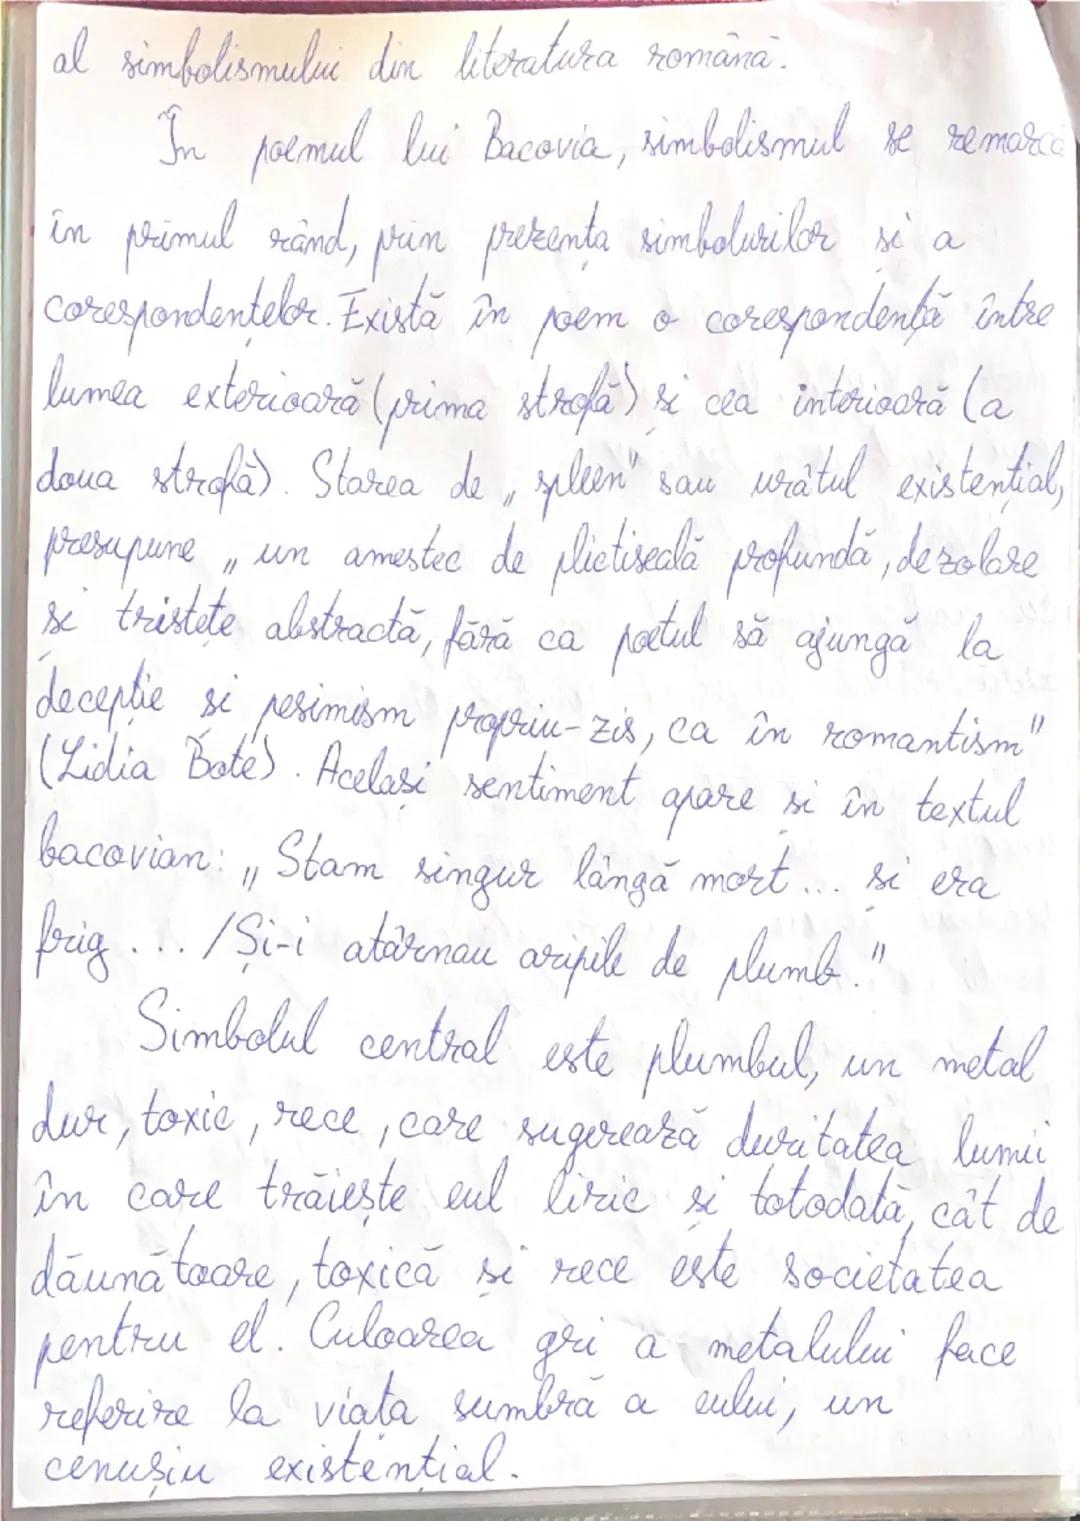 al simbolismului din literatura română.
În poemul lui Bacovia, simbolismul se remarcă
în primul rând, prin prezența simbolurilor și a
corespondențelor. Există în poem o corespondență între
lumea exterioară (prima strofă) și cea interioară (a
doua strofă). Starea de „spleen" sau urâtul existențial,
presupune „un amestec de plictiseală profundă, dezolare
și tristețe abstractă, fără ca poetul să ajungă la
decepție și pesimism propriu-zis, ca în romantism"
(Lidia Bote). Același sentiment apare și în textul
bacovian: „Stam singur lângă mort... și era
frig ... /Și-i atârnau aripile de plumb."
Simbolul central este plumbul, un metal
dur, toxic, rece, care sugerează duritatea lumii
în care trăiește eul liric și totodată, cât de
dăunătoare, toxică și rece este societatea
pentru el. Culoarea gri a metalului face
referire la viața sumbră a eului, un
cenușiu existențial.